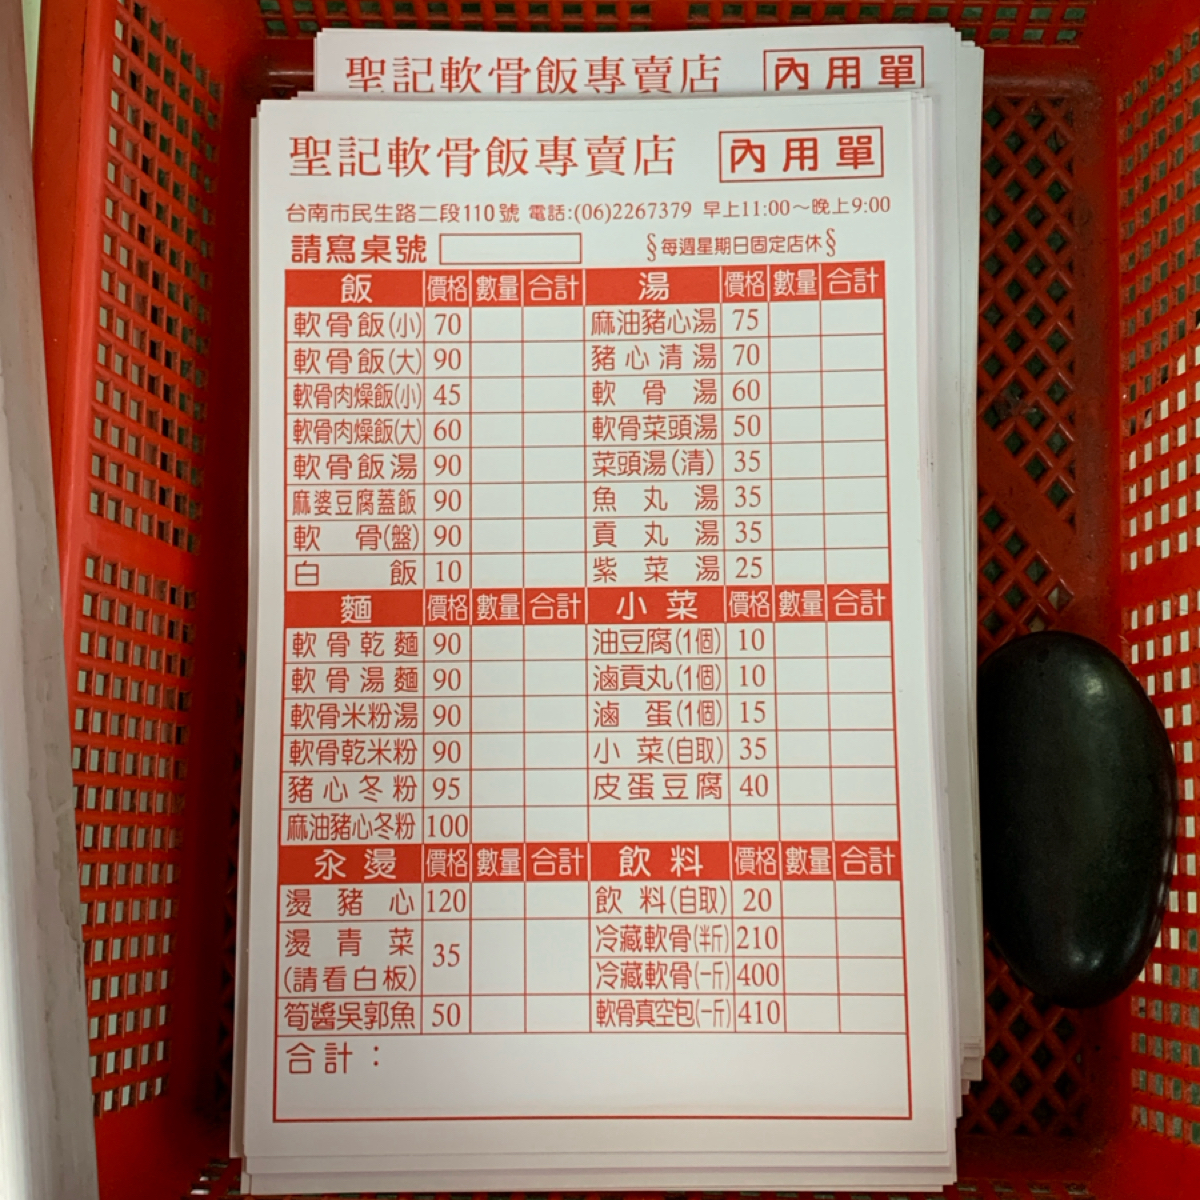 聖記軟骨飯專賣店 內用單
聖記軟骨飯專賣店 內用單
台南市民生路二段110號 電話:(06)2267379 早上11:00～晚上9:00
請寫桌號 §每週星期日固定店休§
飯 價格 數量 合計 湯 價格 數量 合計
軟骨飯(小) 70 麻油豬心湯 75
軟骨飯(大) 90 豬心清湯 70
軟骨肉燥飯(小) 45 軟骨湯 60
軟骨肉燥飯(大) 60 軟骨菜頭湯 50
軟骨飯湯 90 菜頭湯(清) 35
麻婆豆腐蓋飯 90 魚丸湯 35
軟骨(盤) 90 貢丸湯 35
白飯 10 紫菜湯 25
麵 價格 數量 合計 小菜 價格 數量 合計
軟骨乾麵 90 油豆腐(1個) 10
軟骨湯麵 90 滷貢丸(1個) 10
軟骨米粉湯 90 滷蛋(1個) 15
軟骨乾米粉 90 小菜(自取) 35
豬心冬粉 95 皮蛋豆腐 40
麻油豬心冬粉 100
汆燙 價格 數量 合計 飲料 價格 數量 合計
燙豬心 120 飲料(自取) 20
燙青菜 35 冷藏軟骨(半斤) 210
(請看白板) 冷藏軟骨(一斤) 400
筍醬吳郭魚 50 軟骨真空包(一斤) 410
合計：